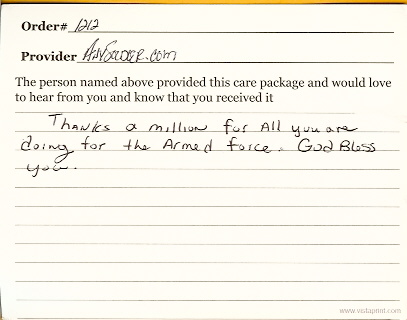 Order# 1212
Provider AnySoldier.com
The person named above provided this care package and would love
to hear from you and know that you received it
Thanks a million for All you are
doing for the Armed force. God Bless
you.
www.vistaprint.com